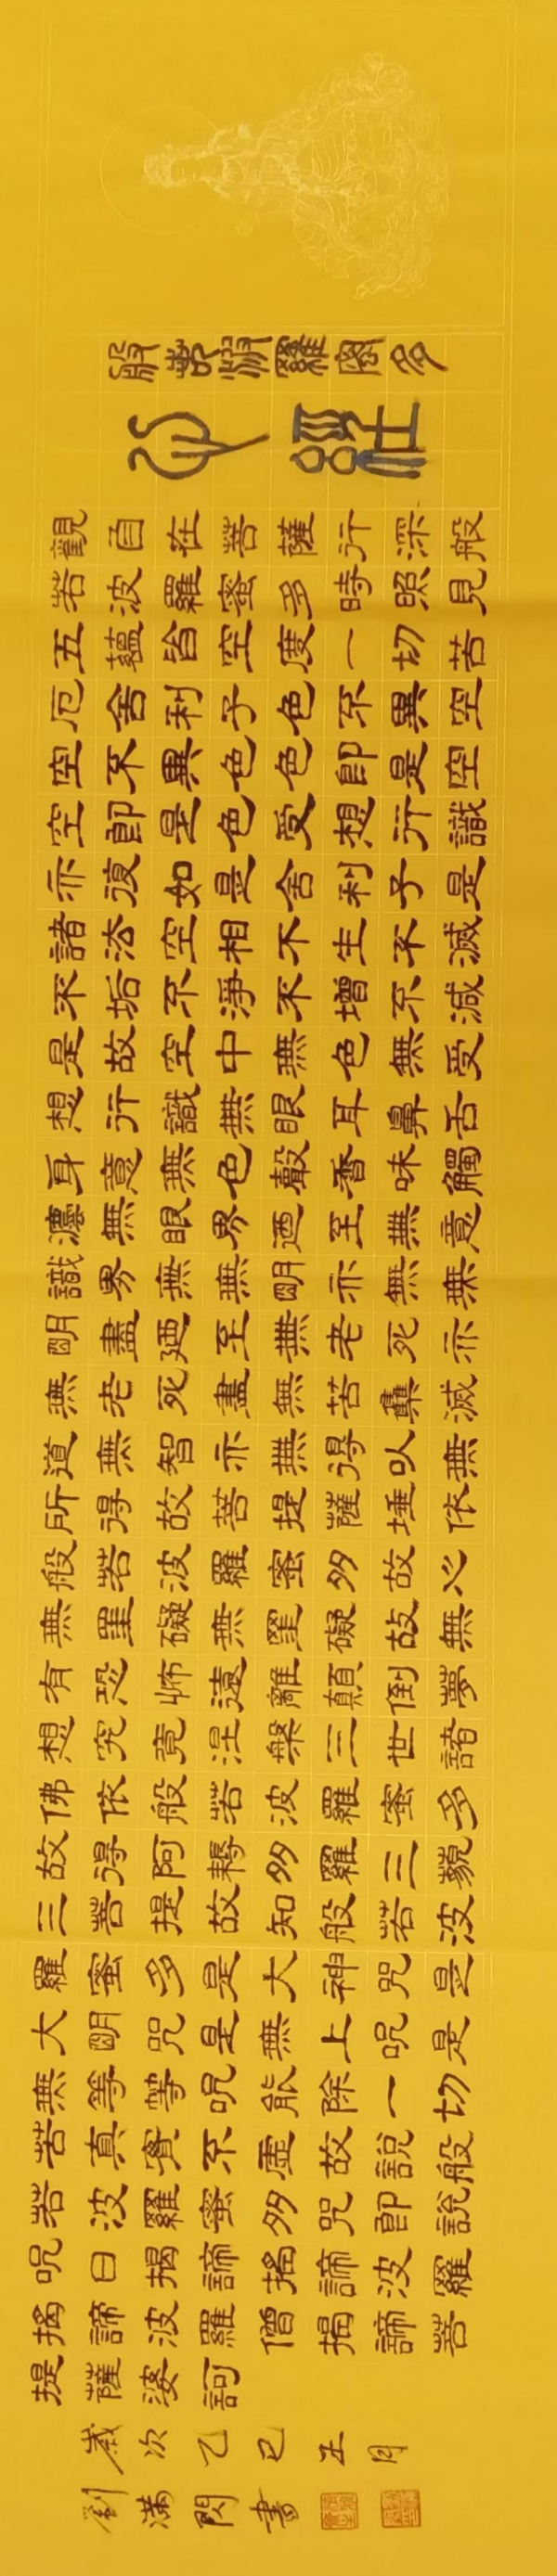 般若波羅蜜多
心經
觀自在菩薩行深般
若波羅蜜多時照見
五蘊皆空度一切苦
厄舍利子色不異空
空不異色色即是空
空即是色受想行識
亦復如是舍利子是
諸法空相不生不滅
不垢不淨不增不減
是故空中無色無受
想行識無眼耳鼻舌
身意無色聲香味觸
灋無眼界廼至無意
識界無無明亦無無
明盡廼至無老死亦
無老死盡無苦集滅
道無智亦無得以無
所得故菩提薩埵依
般若波羅蜜多故心
無罣礙無罣礙故無
有恐怖遠離顛倒夢
想究竟涅槃三世諸
佛依般若波羅蜜多
故得阿耨多羅三藐
三菩提故知般若波
羅蜜多是大神咒是
大明咒是無上呪是
無等等呪能除一切
苦真實不虛故說般
若波羅蜜多咒即說
呪曰揭諦揭諦波羅
揭諦波羅僧揭諦菩
提薩婆訶
歲次乙巳正月
劉滿閃書